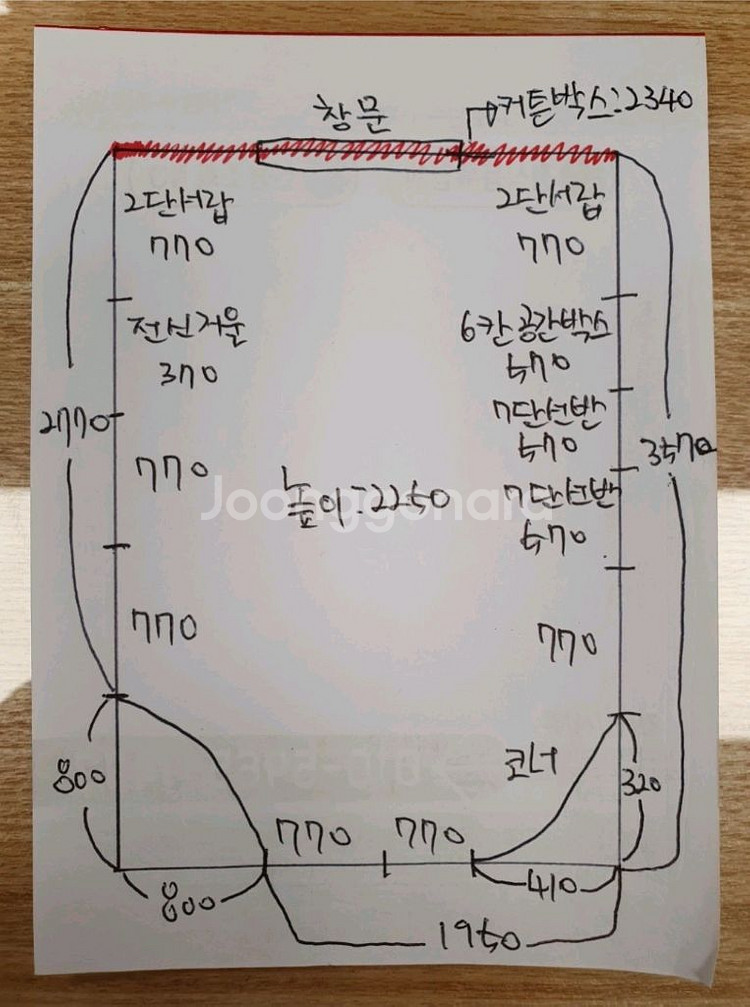 창문
커튼박스:2340
2단서랍
770
2단서랍
770
전신거울
370
6칸 공간박스
570
7단선반
570
2770
770
3570
높이:2250
7단선반
570
Joonggonara
770
770
코너
800
320
770
770
800
410
1950